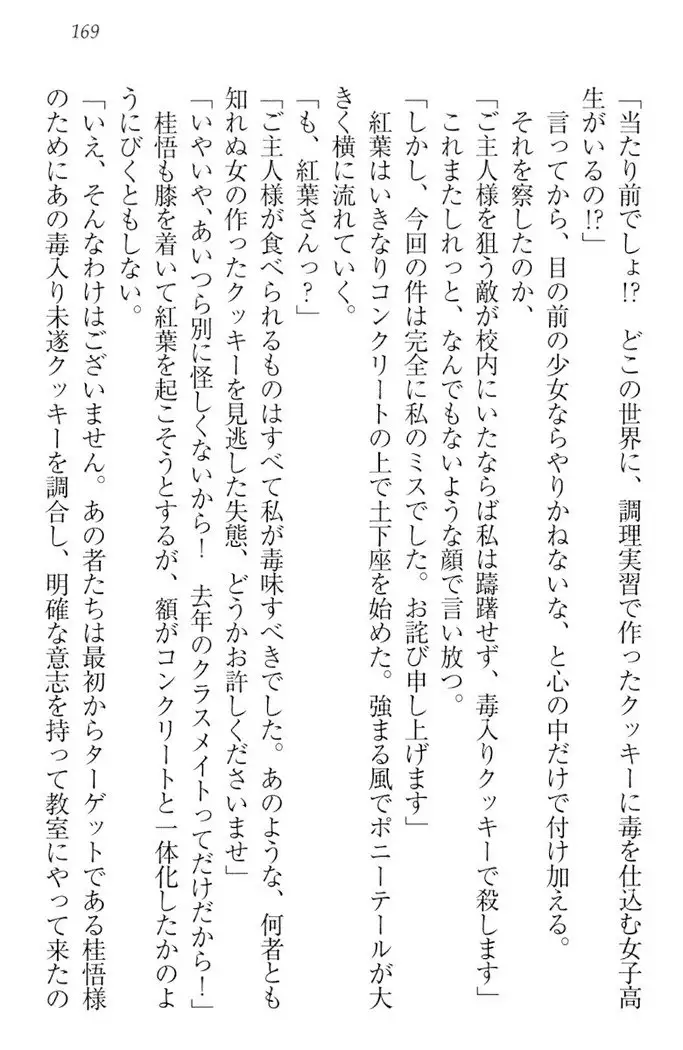 169
「当たり前でしょ!?　どこの世界に、調理実習で作ったクッキーに毒を仕込む女子高
生がいるの!?」
　言ってから、目の前の少女ならやりかねないな、と心の中だけで付け加える。
　それを察したのか、
「ご主人様を狙う敵が校内にいたならば私は躊躇せず、毒入りクッキーで殺します」
　これまたしれっと、なんでもないような顔で言い放つ。
「しかし、今回の件は完全に私のミスでした。お詫び申し上げます」
　紅葉はいきなりコンクリートの上で土下座を始めた。強まる風でポニーテールが大
きく横に流れていく。
「も、紅葉さんっ？」
「ご主人様が食べられるものはすべて私が毒味すべきでした。あのような、何者とも
知れぬ女の作ったクッキーを見逃した失態、どうかお許しくださいませ」
「いやいや、あいつら別に怪しくないから！　去年のクラスメイトってだけだから！」
　桂悟も膝を着いて紅葉を起こそうとするが、額がコンクリートと一体化したかのよ
うにびくともしない。
「いえ、そんなわけはございません。あの者たちは最初からターゲットである桂悟様
のためにあの毒入り未遂クッキーを調合し、明確な意志を持って教室にやって来たの